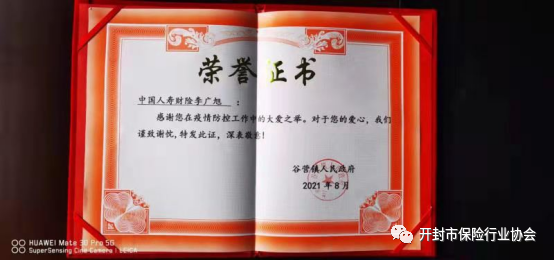 荣誉证书
中国人寿财险李广旭 :
感谢您在疫情防控工作中的大爱之举。对于您的爱心,我们
谨致谢忱,特发此证,深表敬意!
谷营镇人民政府
2021年8月
HUAWEI Mate 30 Pro 5G
SuperSensing Cine Camera | LEICA
开封市保险行业协会